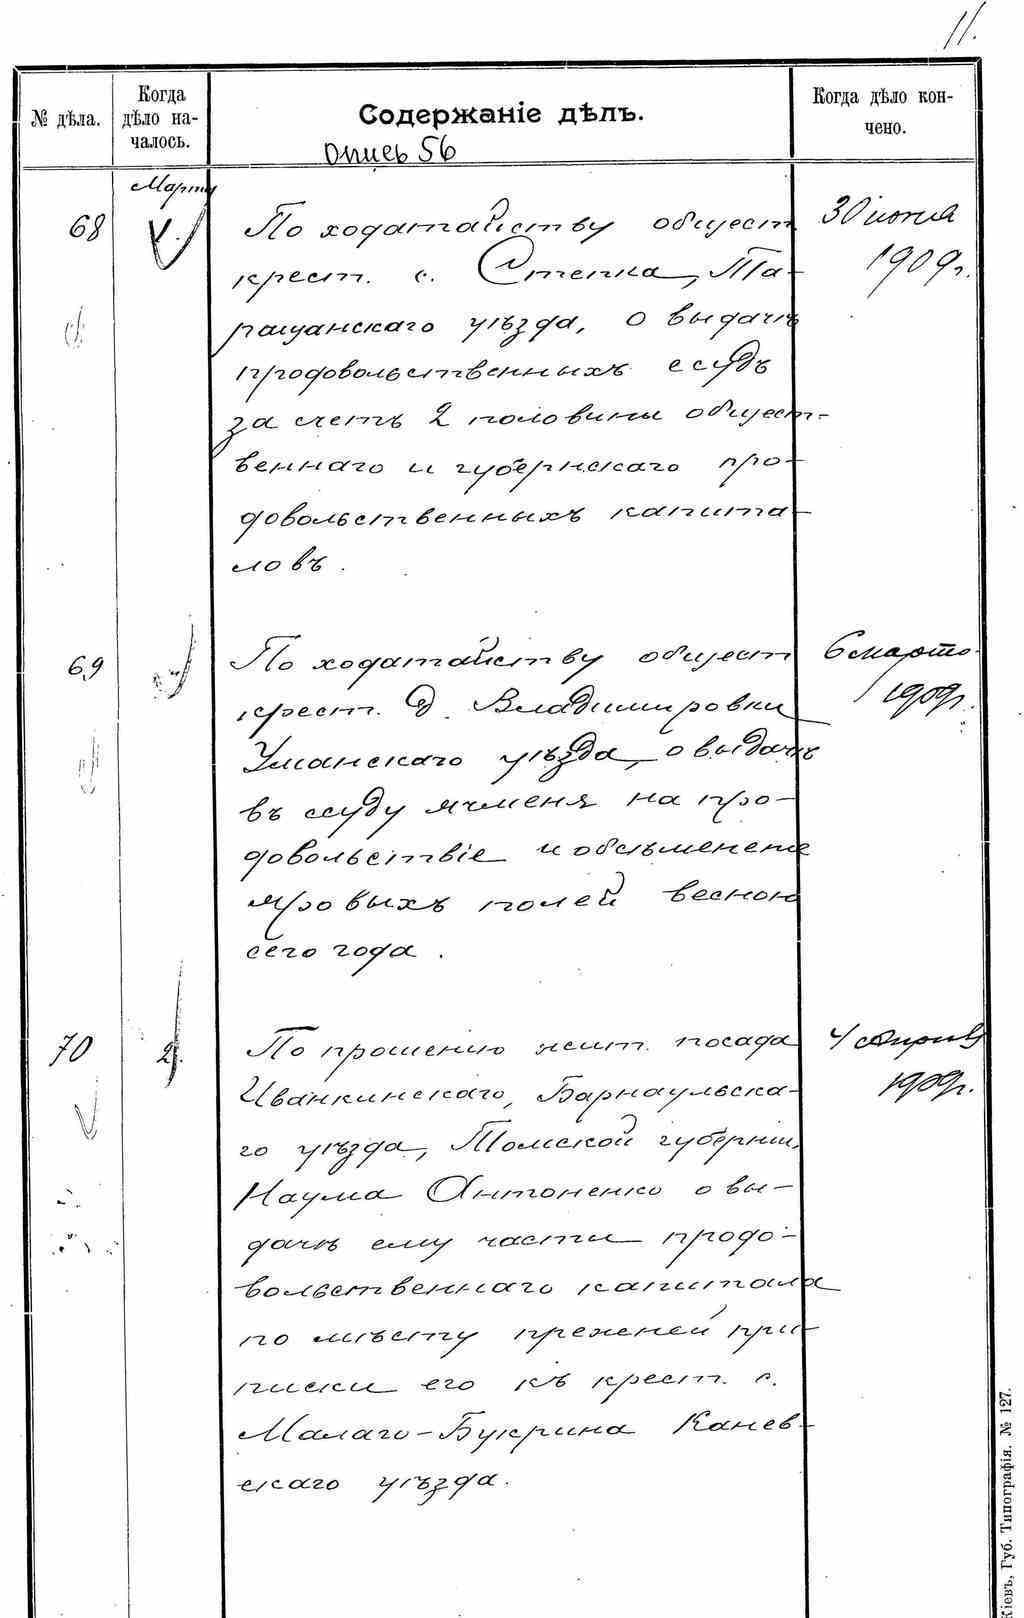 11.
№ дѣла.
Когда
дѣло на-
чалось.
Содержаніе дѣлъ.
Опись 56
Когда дѣло кон-
чено.
Марта
68
1.
По ходатайству общест
крест. с. Степка, Та-
ращанскаго уѣзда, о выдачѣ
продовольственныхъ ссудъ
за счетъ 2 половины общест-
веннаго и губернскаго про-
довольственныхъ капита-
ловъ.
30 іюня
1909г.
69
По ходатайству общест
крест. д. Владимировки
Уманскаго уѣзда, о выдачѣ
въ ссуду ячменя на про-
довольствіе и обсѣмененіе
яровыхъ полей весною
сего года.
6 марта
1909г.
70
2.
По прошенію жит. посада
Иванкинскаго, Барнаульска-
го уѣзда, Томской губерніи,
Наума Антоненко о вы-
дачѣ ему части продо-
вольственнаго капитала
по мѣсту прежней при-
писки его къ крест. с.
Малаго-Букрина Канев-
скаго уѣзда.
4 апрѣля
1909г.
Кіевъ, Губ. Типографія. № 127.